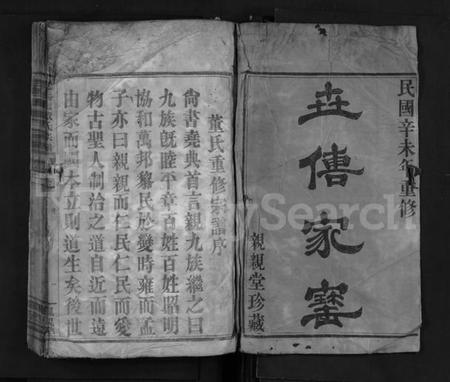 民國辛未年重修
世傳家寶
親親堂珍藏
董氏重修宗譜序
尙書堯典首言親九族繼之曰
九族旣睦平章百姓百姓昭明
協和萬邦黎民於變時雍而孟
子亦曰親親而仁民仁民而愛
物古聖人制治之道自近而遠
由家而國本立則道生矣後世
MyFamilySearch